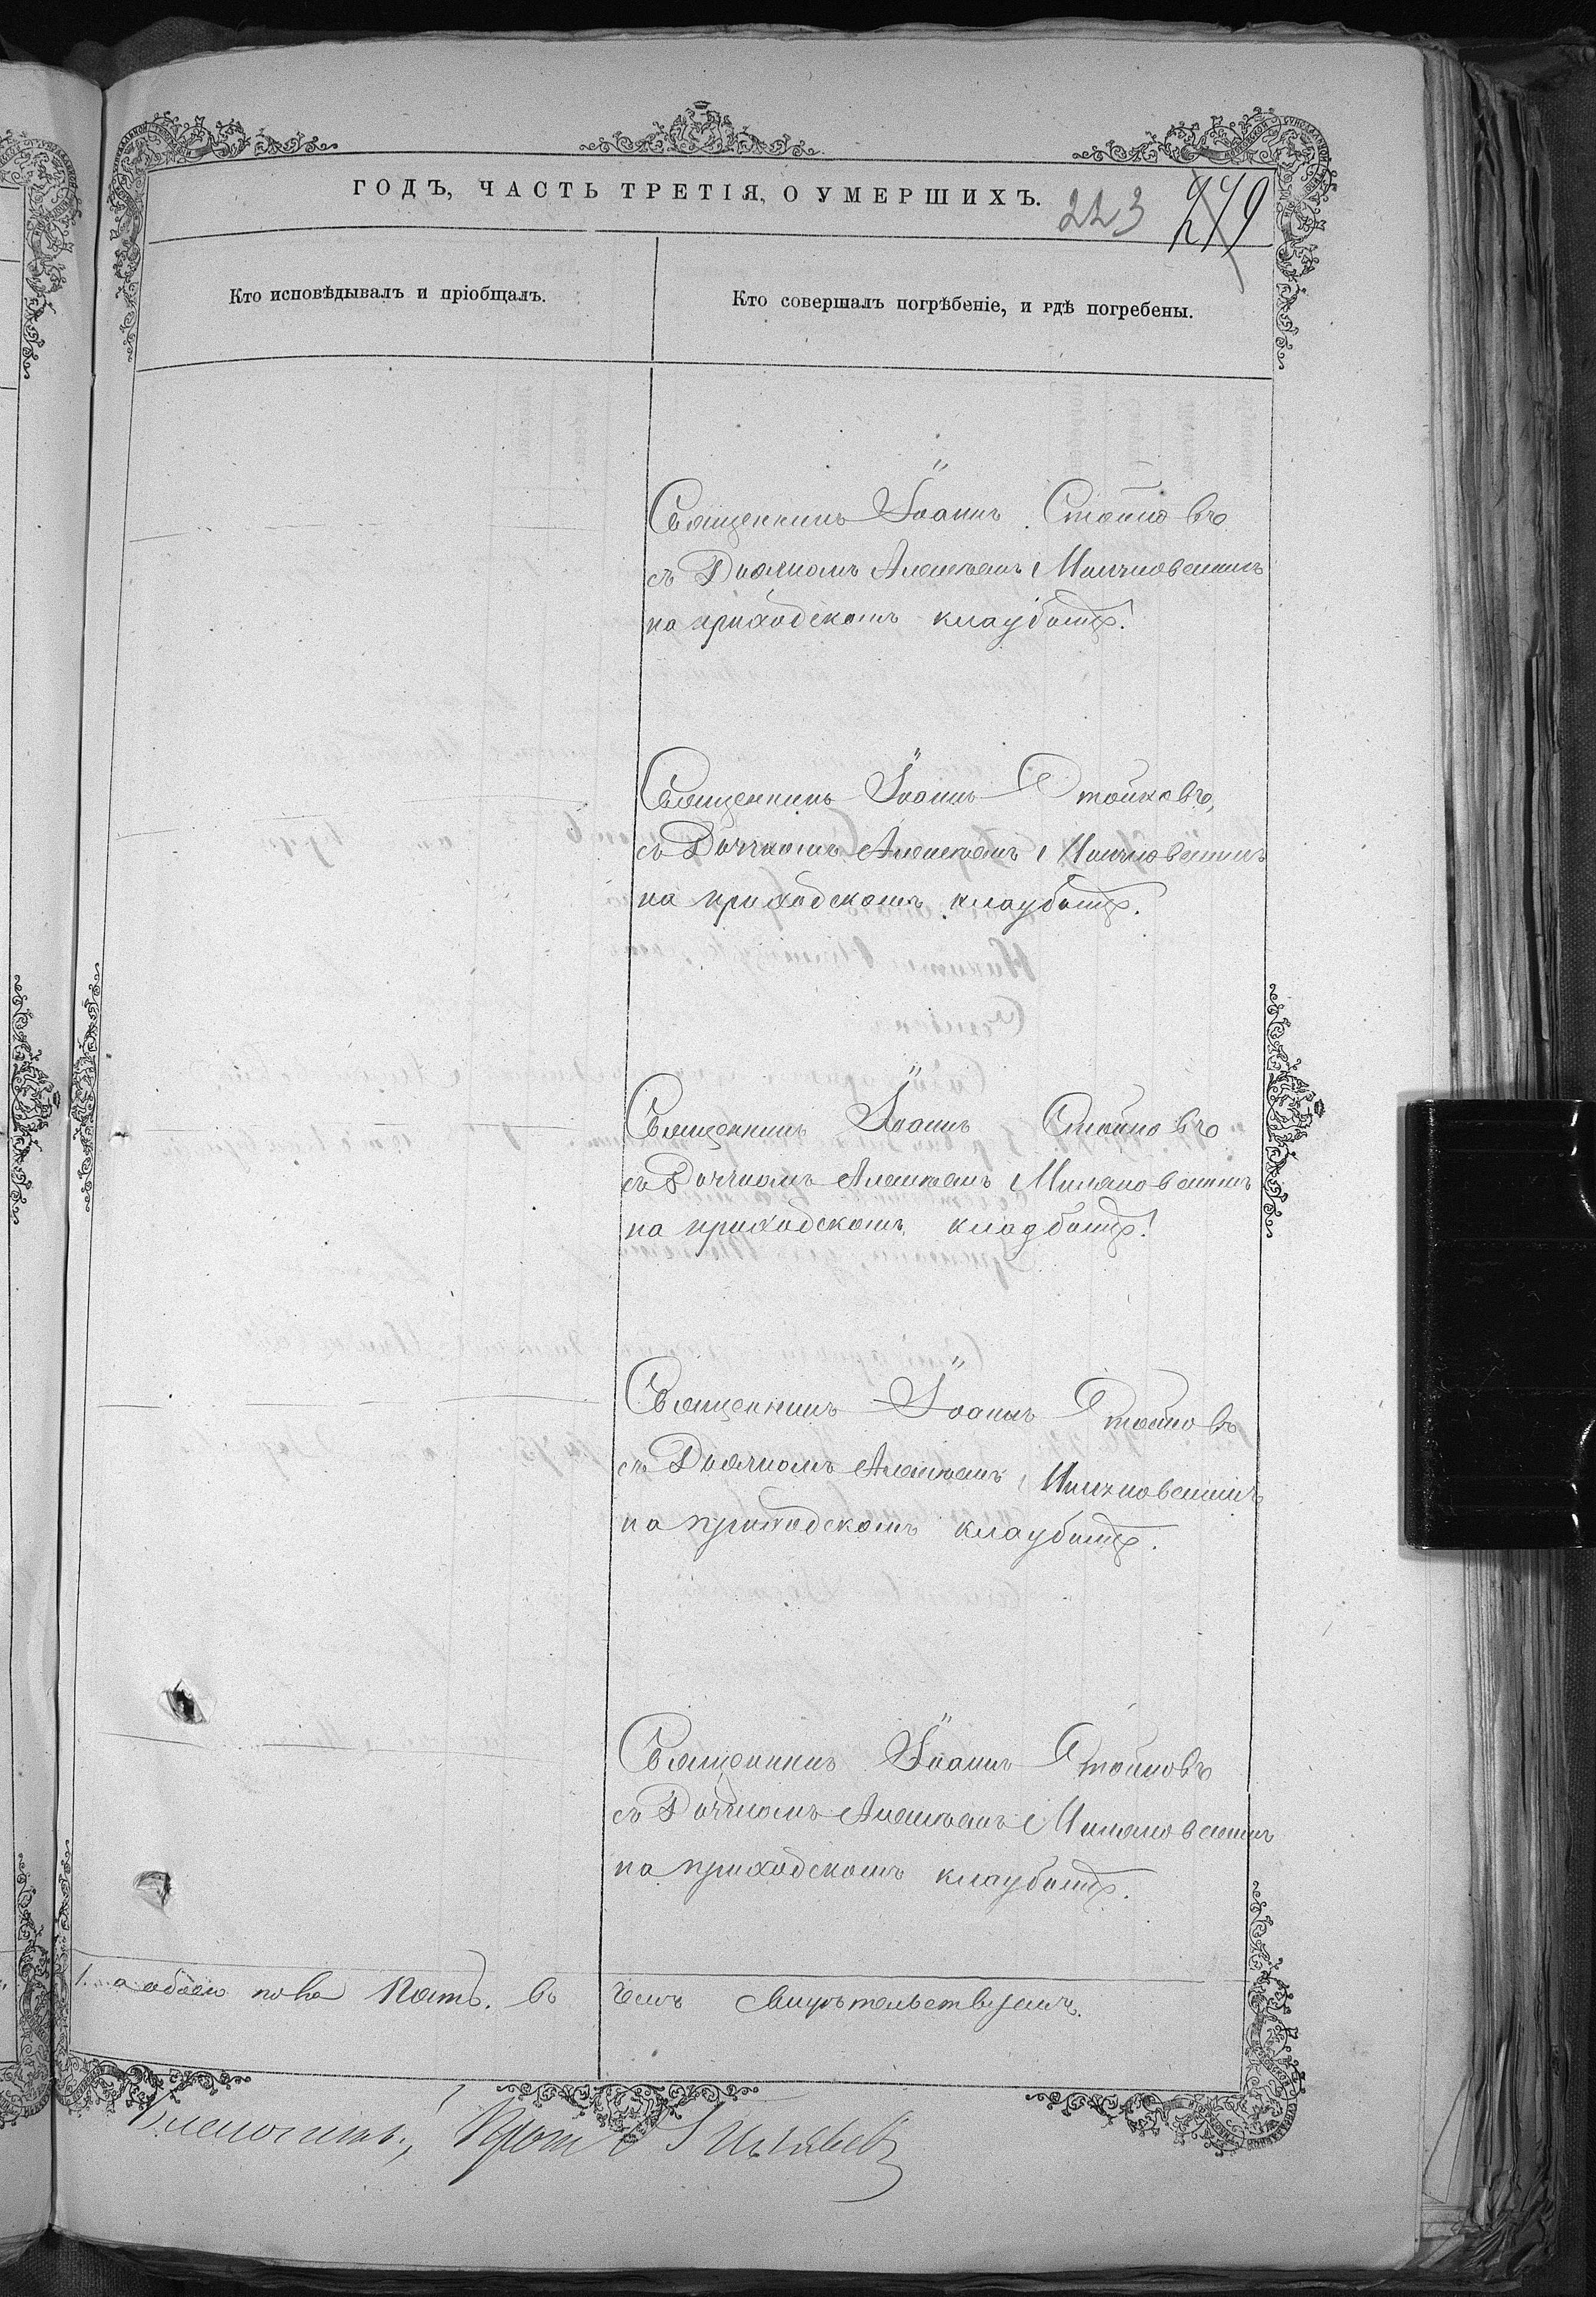 ГОДЪ, ЧАСТЬ ТРЕТІЯ, О УМЕРШИХЪ. 223
Кто исповѣдывалъ и пріобщалъ.
Кто совершалъ погрѣбеніе, и гдѣ погребены.
Священникъ Іоаннъ Стойковъ
съ Дьячкомъ Алексѣемъ
на приходскомъ кладбищѣ.
Священникъ Іоаннъ Стойковъ,
съ Дьячкомъ Алексѣемъ
на приходскомъ кладбищѣ.
Священникъ Іоаннъ Стойковъ
съ Дьячкомъ Алексѣемъ
на приходскомъ кладбищѣ.
Священникъ Іоаннъ Стойковъ
съ Дьячкомъ Алексѣемъ
на приходскомъ кладбищѣ.
Священникъ Іоаннъ Стойковъ
съ Дьячкомъ Алексѣемъ
на приходскомъ кладбищѣ.
а обоего пола пять. въ чемъ свидѣтельствуемъ.